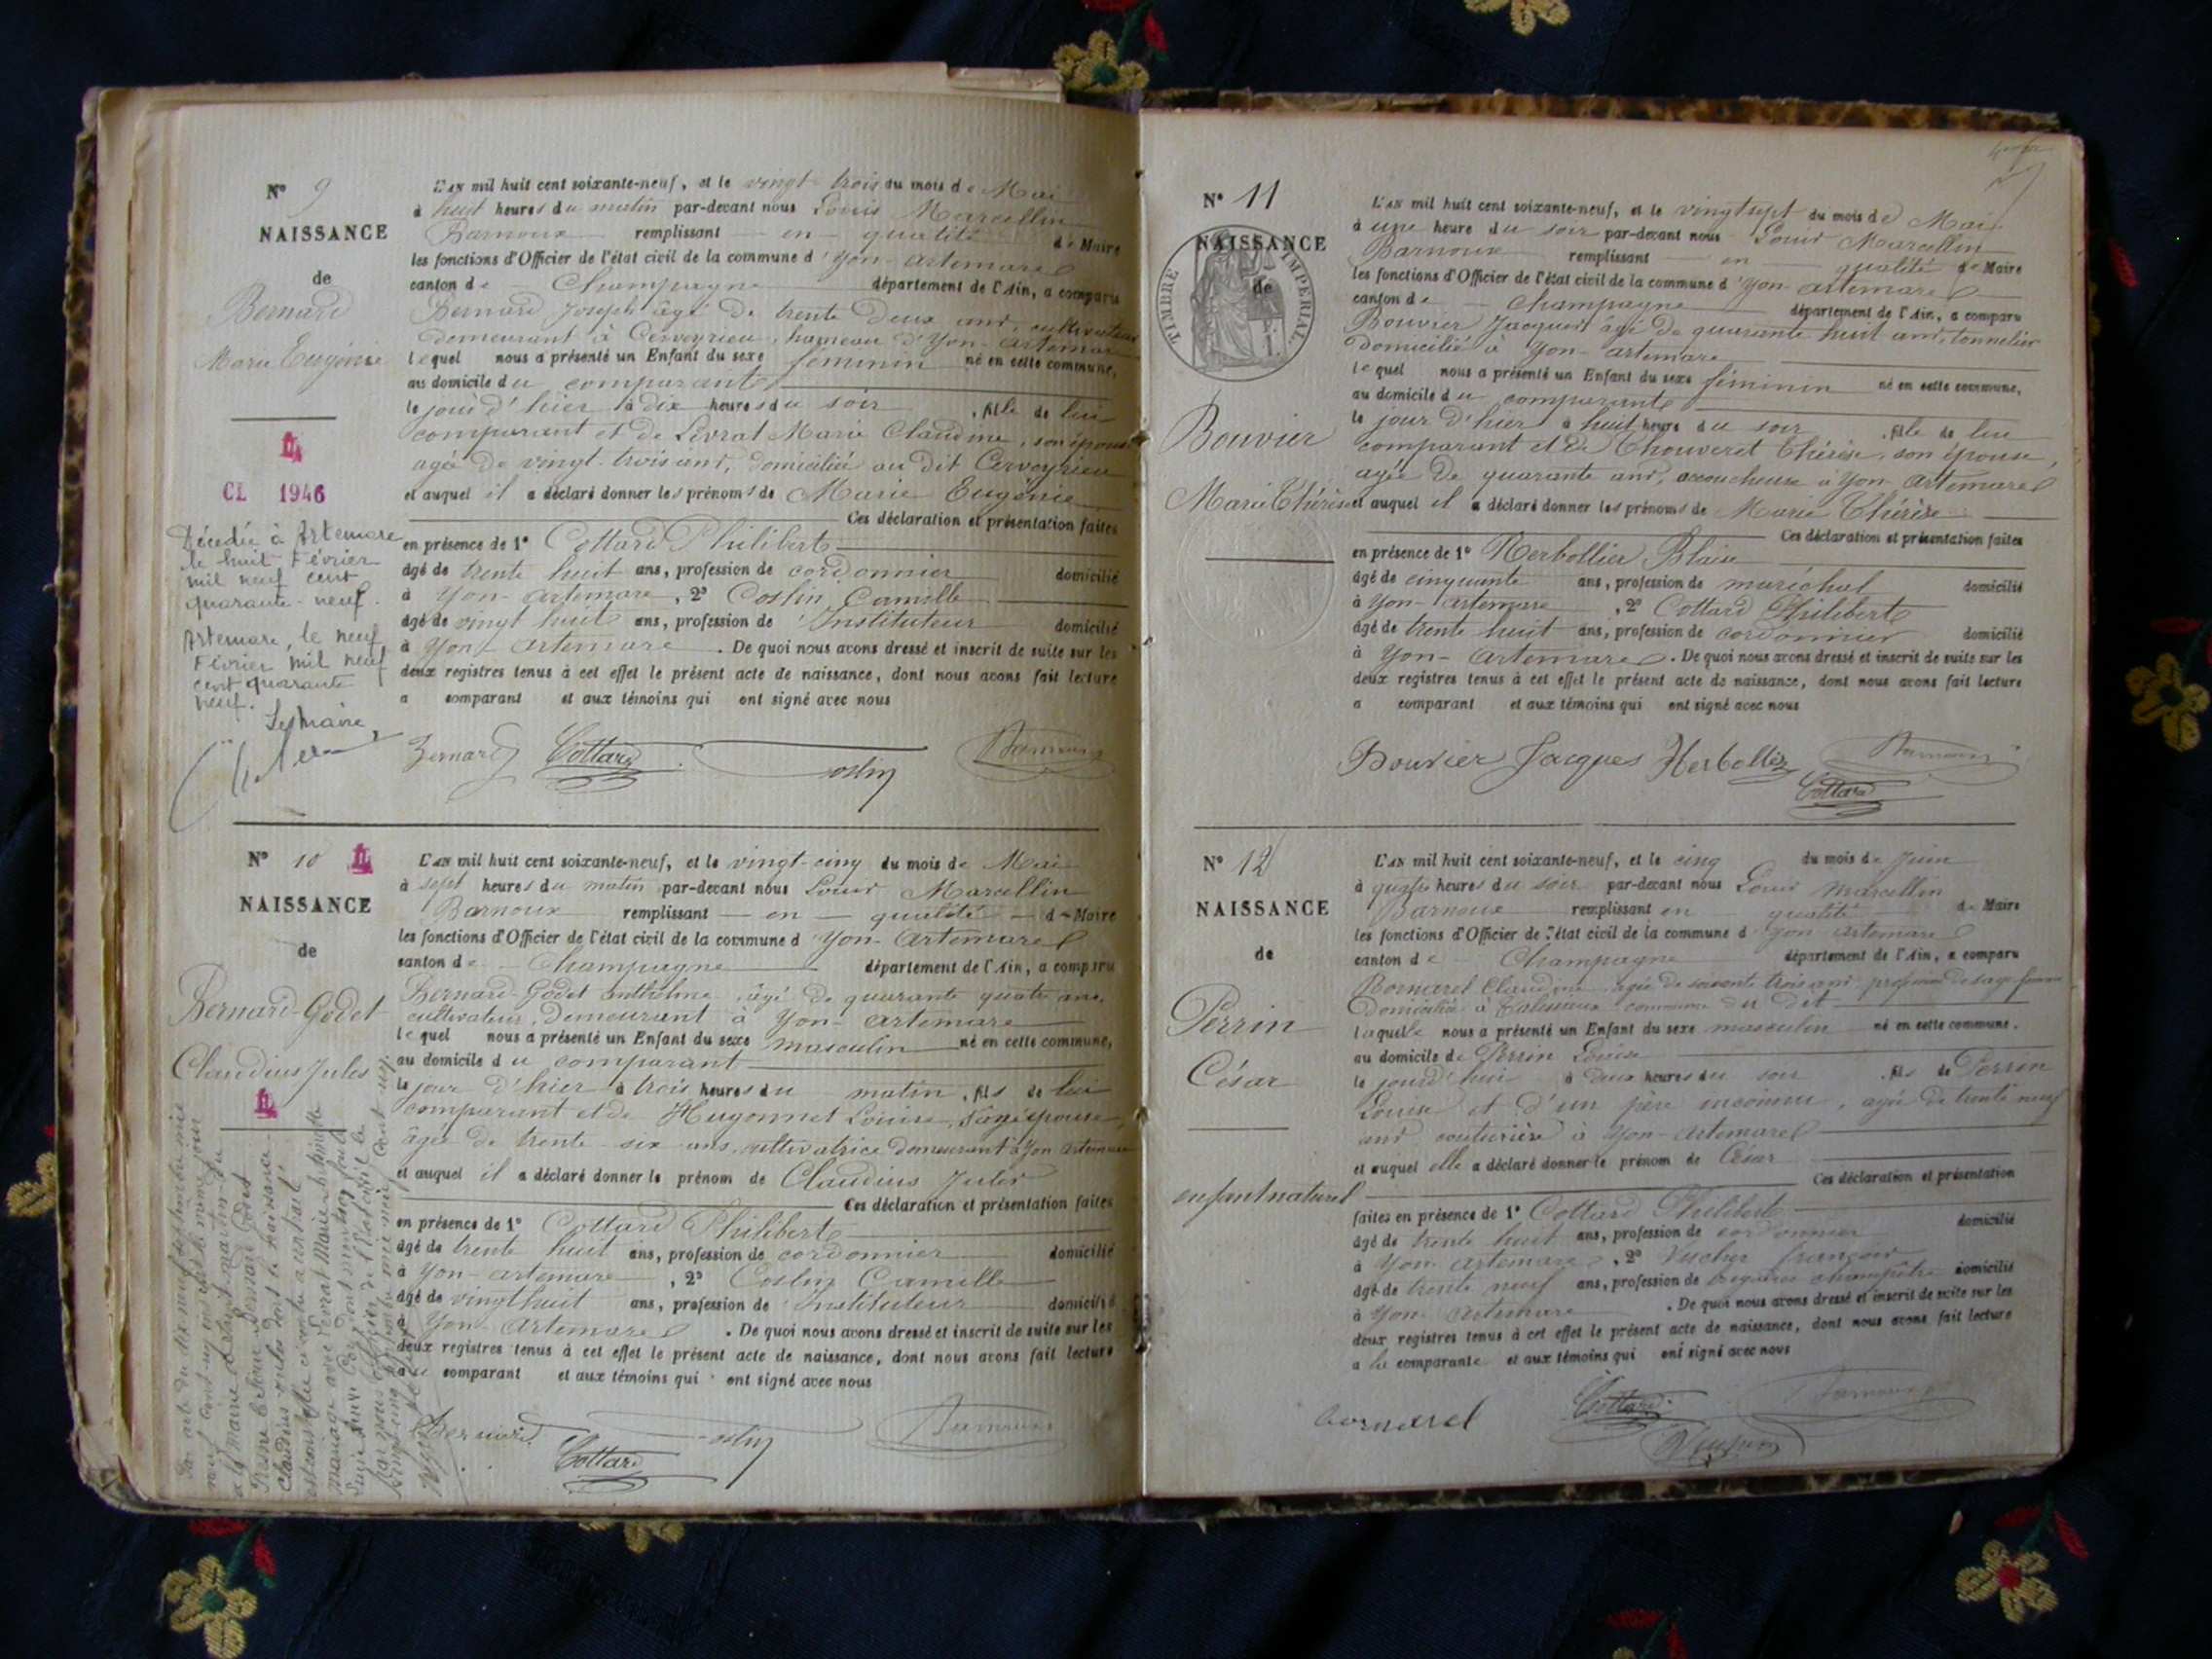 N° 9
NAISSANCE
de
Bernard
Marie Eugénie
CL 1946
Décédée à Artemare
le huit Février
mil neuf cent
quarante-neuf.
Artemare, le neuf
Février mil neuf
cent quarante
neuf.
Le Maire,
L'AN mil huit cent soixante-neuf, et le vingt trois du mois de Mai
à huit heures du matin par-devant nous Louis Marcellin
Barnoux remplissant en qualité de Maire
les fonctions d'Officier de l'état civil de la commune d'Yon-Artemare
canton de Champagne département de l'Ain, a comparu
Bernard Joseph âgé de trente deux ans, cultivateur
demeurant à Cerveyrieu, hameau d'Yon-Artemare
lequel nous a présenté un Enfant du sexe féminin né en cette commune,
au domicile du comparant
le jour d'hier à dix heures du soir, fille de lui
comparant et de Livrat Marie Claudine, son épouse
agée de vingt-trois ans, domiciliée au dit Cerveyrieu
et auquel il a déclaré donner les prénoms de Marie Eugénie
Ces déclaration et présentation faites
en présence de 1° Cottard Philibert
âgé de trente huit ans, profession de cordonnier domicilié
à Yon-Artemare, 2° Coslin Camille
âgé de vingt huit ans, profession de Instituteur domicilié
à Yon-Artemare. De quoi nous avons dressé et inscrit de suite sur les
deux registres tenus à cet effet le présent acte de naissance, dont nous avons fait lecture
a comparant et aux témoins qui ont signé avec nous
Bernard Cottard Coslin Barnoux
N° 10
NAISSANCE
de
Bernard-Godet
Claudius Jules
L'AN mil huit cent soixante-neuf, et le vingt-cinq du mois de Mai
à sept heures du matin par-devant nous Louis Marcellin
Barnoux remplissant en qualité de Maire
les fonctions d'Officier de l'état civil de la commune d'Yon-Artemare
canton de Champagne département de l'Ain, a comparu
Bernard-Godet Anthelme, âgé de quarante quatre ans,
cultivateur, demeurant à Yon-Artemare
lequel nous a présenté un Enfant du sexe masculin né en cette commune,
au domicile du comparant
le jour d'hier à trois heures du matin, fils de lui
comparant et de Hugonnet Louise, son épouse,
âgée de trente-six ans, cultivatrice demeurant à Yon Artemare
et auquel il a déclaré donner le prénom de Claudius Jules
Ces déclaration et présentation faites
en présence de 1° Cottard Philibert
âgé de trente huit ans, profession de cordonnier domicilié
à Yon-Artemare, 2° Coslin Camille
âgé de vingt huit ans, profession de Instituteur domicilié
à Yon-Artemare. De quoi nous avons dressé et inscrit de suite sur les
deux registres tenus à cet effet le présent acte de naissance, dont nous avons fait lecture
au comparant et aux témoins qui ont signé avec nous
Bernard Coslin Barnoux
Cottard
N° 11
NAISSANCE
de
TIMBRE IMPERIAL
Bouvier
Marie Thérèse
L'AN mil huit cent soixante-neuf, et le vingt sept du mois de Mai
à une heure du soir par-devant nous Louis Marcellin
Barnoux remplissant en qualité de Maire
les fonctions d'Officier de l'état civil de la commune d'Yon-Artemare
canton de Champagne département de l'Ain, a comparu
Bouvier Jacques âgé de quarante huit ans, tonnelier
domicilié à Yon-Artemare
lequel nous a présenté un Enfant du sexe féminin né en cette commune,
au domicile du comparant
le jour d'hier à huit heures du soir, fille de lui
comparant et de Chouveret Thérèse, son épouse,
agée de quarante ans, accoucheuse à Yon-Artemare
et auquel il a déclaré donner les prénoms de Marie Thérèse
Ces déclaration et présentation faites
en présence de 1° Herbollier Blaise
âgé de cinquante ans, profession de maréchal domicilié
à Yon-Artemare, 2° Cottard Philibert
âgé de trente huit ans, profession de cordonnier domicilié
à Yon-Artemare. De quoi nous avons dressé et inscrit de suite sur les
deux registres tenus à cet effet le présent acte de naissance, dont nous avons fait lecture
a comparant et aux témoins qui ont signé avec nous
Bouvier Jacques Herbollier Barnoux
Cottard
N° 12
NAISSANCE
de
Perrin
César
enfant naturel
L'AN mil huit cent soixante-neuf, et le cinq du mois de Juin
à quatre heures du soir par-devant nous Louis Marcellin
Barnoux remplissant en qualité de Maire
les fonctions d'Officier de l'état civil de la commune d'Yon-Artemare
canton de Champagne département de l'Ain, a comparu
Bornarel Claudine, agée de soixante trois ans profession de sage femme
Domiciliée à commune du dit
laquelle nous a présenté un Enfant du sexe masculin né en cette commune,
au domicile de Perrin Louise
le jourd'hui à deux heures du soir, fils de Perrin
Louise et d'un père inconnu, agée de trente neuf
ans couturière à Yon-Artemare
et auquel elle a déclaré donner le prénom de César
Ces déclaration et présentation
faites en présence de 1° Cottard Philibert
âgé de trente huit ans, profession de cordonnier domicilié
à Yon-Artemare, 2° Vucher françois
âgé de trente neuf ans, profession de champêtre domicilié
à Yon-Artemare. De quoi nous avons dressé et inscrit de suite sur les
deux registres tenus à cet effet le présent acte de naissance, dont nous avons fait lecture
a la comparante et aux témoins qui ont signé avec nous
bornarel Cottard Barnoux